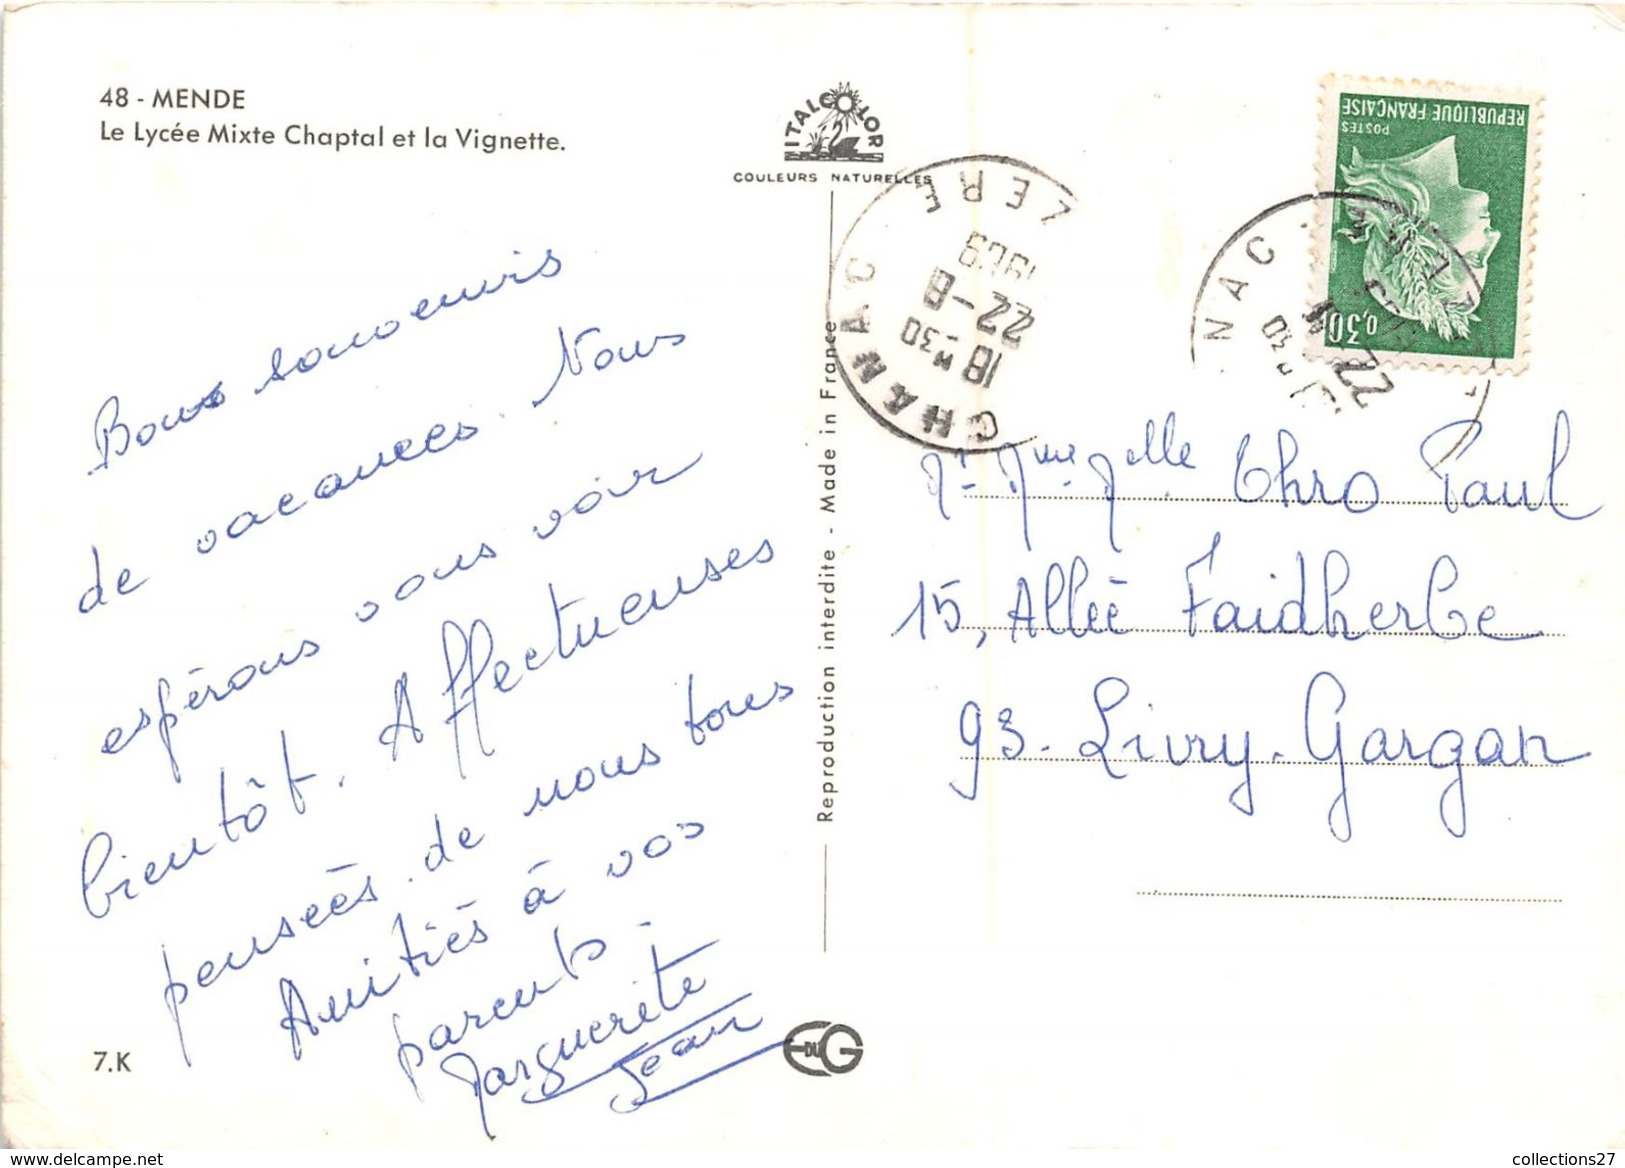 48 - MENDE
Le Lycée Mixte Chaptal et la Vignette.
ITALCOLOR
COULEURS NATURELLES
Bons souvenirs
de vacances. Nous
espérons vous voir
bientôt. Affectueuses
pensées de nous tous
Amitiés à vos
parents.
Marguerite
Jean
7.K
EDUG
Reproduction interdite - Made in France
CHANAC
LOZERE
18 H 30
22-8
1969
REPUBLIQUE FRANÇAISE
POSTES
0,30
NAC
22
Mr. Mme Melle Thro Paul
15, Allée Faidherbe
93. Livry. Gargan
www.delcampe.net
collections27